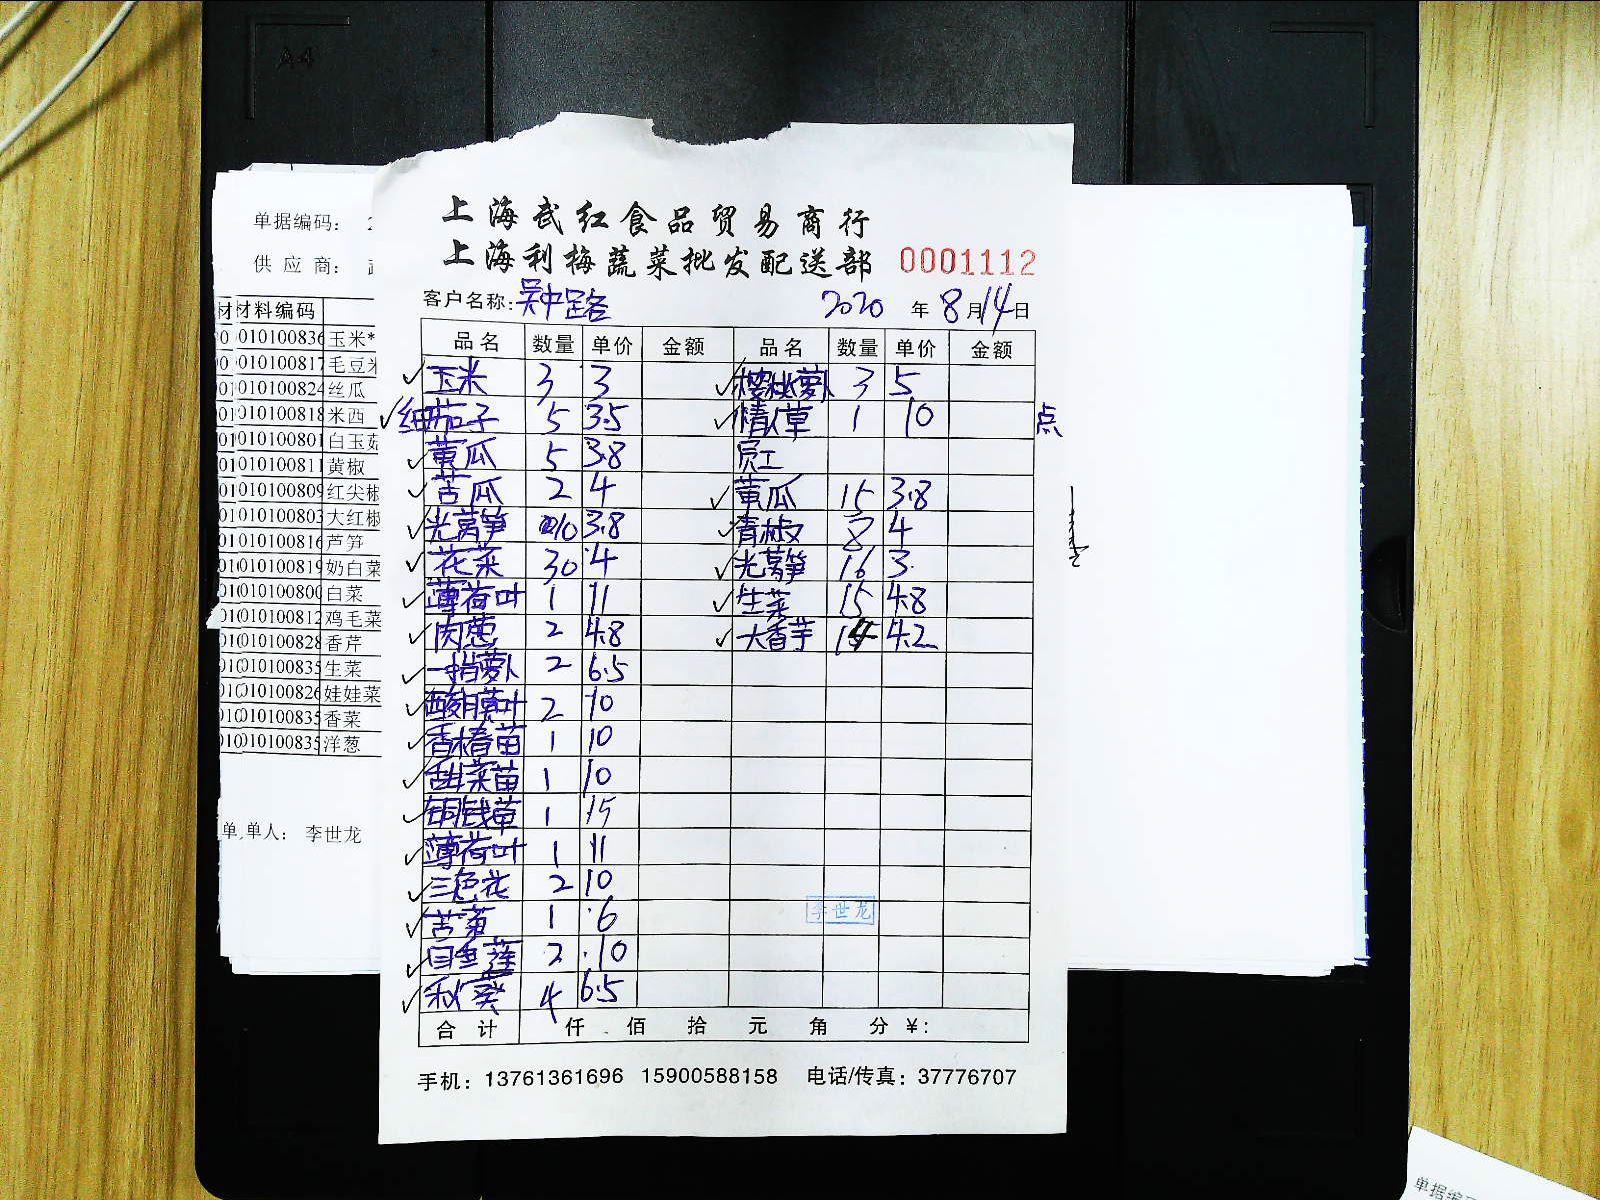 A4
上海武红食品贸易商行
上海利梅蔬菜批发配送部 0001112
客户名称：吴中路 2020 年 8 月 14 日
品名 数量 单价 金额 品名 数量 单价 金额
玉米 3 3 樱桃萝卜 3 5
细茄子 5 3.5 情人草 1 10 点
黄瓜 5 3.8 员工
苦瓜 2 4 黄瓜 15 3.8
光莴笋 10 3.8 青椒 8 4
花菜 30 4 光莴笋 16 3
薄荷叶 1 11 生菜 15 4.8
肉葱 2 4.8 大香芋 14 4.2
一指萝卜 2 6.5
酸膜叶 2 10
香椿苗 1 10
甜菜苗 1 10
铜钱草 1 15
薄荷叶 1 11
三色花 2 10
苦菊 1 6
2 10
秋葵 4 6.5
李世龙
合计 仟 佰 拾 元 角 分 ￥:
手机：13761361696 15900588158 电话/传真：37776707
单据编码： 2
供应商：
材料编码
010100836 玉米*
010100817 毛豆米
010100824 丝瓜
010100818 米西
010100801 白玉菇
010100811 黄椒
010100809 红尖椒
010100803 大红椒
010100816 芦笋
010100819 奶白菜
010100800 白菜
010100812 鸡毛菜
010100828 香芹
010100835 生菜
010100826 娃娃菜
010100835 香菜
010100835 洋葱
单人： 李世龙
单据编